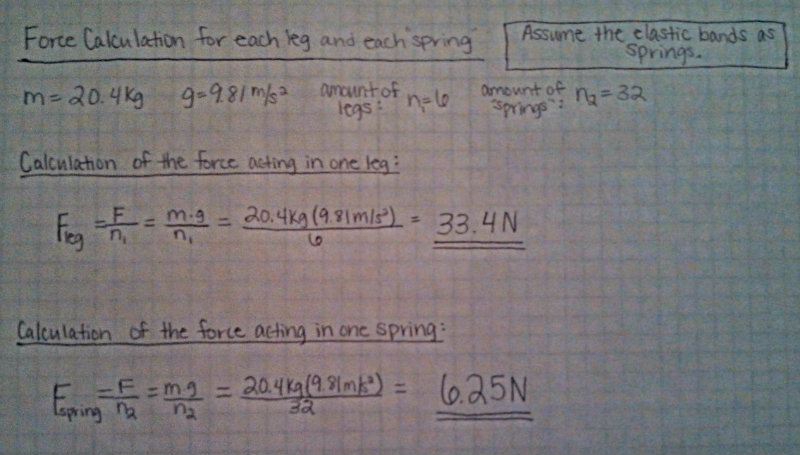 Force Calculation for each leg and each "spring"
Assume the elastic bands as
springs.
m = 20.4 Kg g = 9.81 m/s² amount of legs: n₁ = 6 amount of "springs": n₂ = 32
Calculation of the force acting in one leg:
F_leg = F/n₁ = m·g/n₁ = 20.4 Kg (9.81 m/s²)/6 = 33.4 N
Calculation of the force acting in one spring:
F_spring = F/n₂ = m·g/n₂ = 20.4 Kg (9.81 m/s²)/32 = 6.25 N